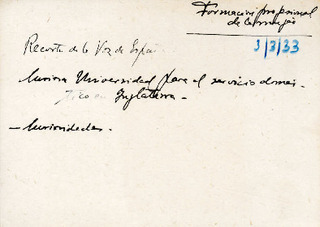 Formación profesional
de la mujer
3/3/33
Recorte de la Voz de España
Curiosa Universidad para el servicio domés-
tico en Inglaterra.
- Curiosidades.